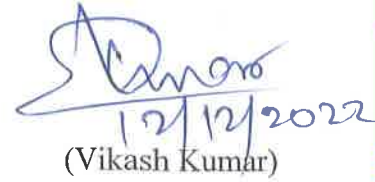 12/12/2022
(Vikash Kumar)